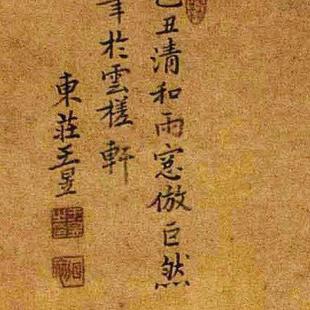 己丑清和雨窓倣巨然
筆於雲槎軒
東莊王昱